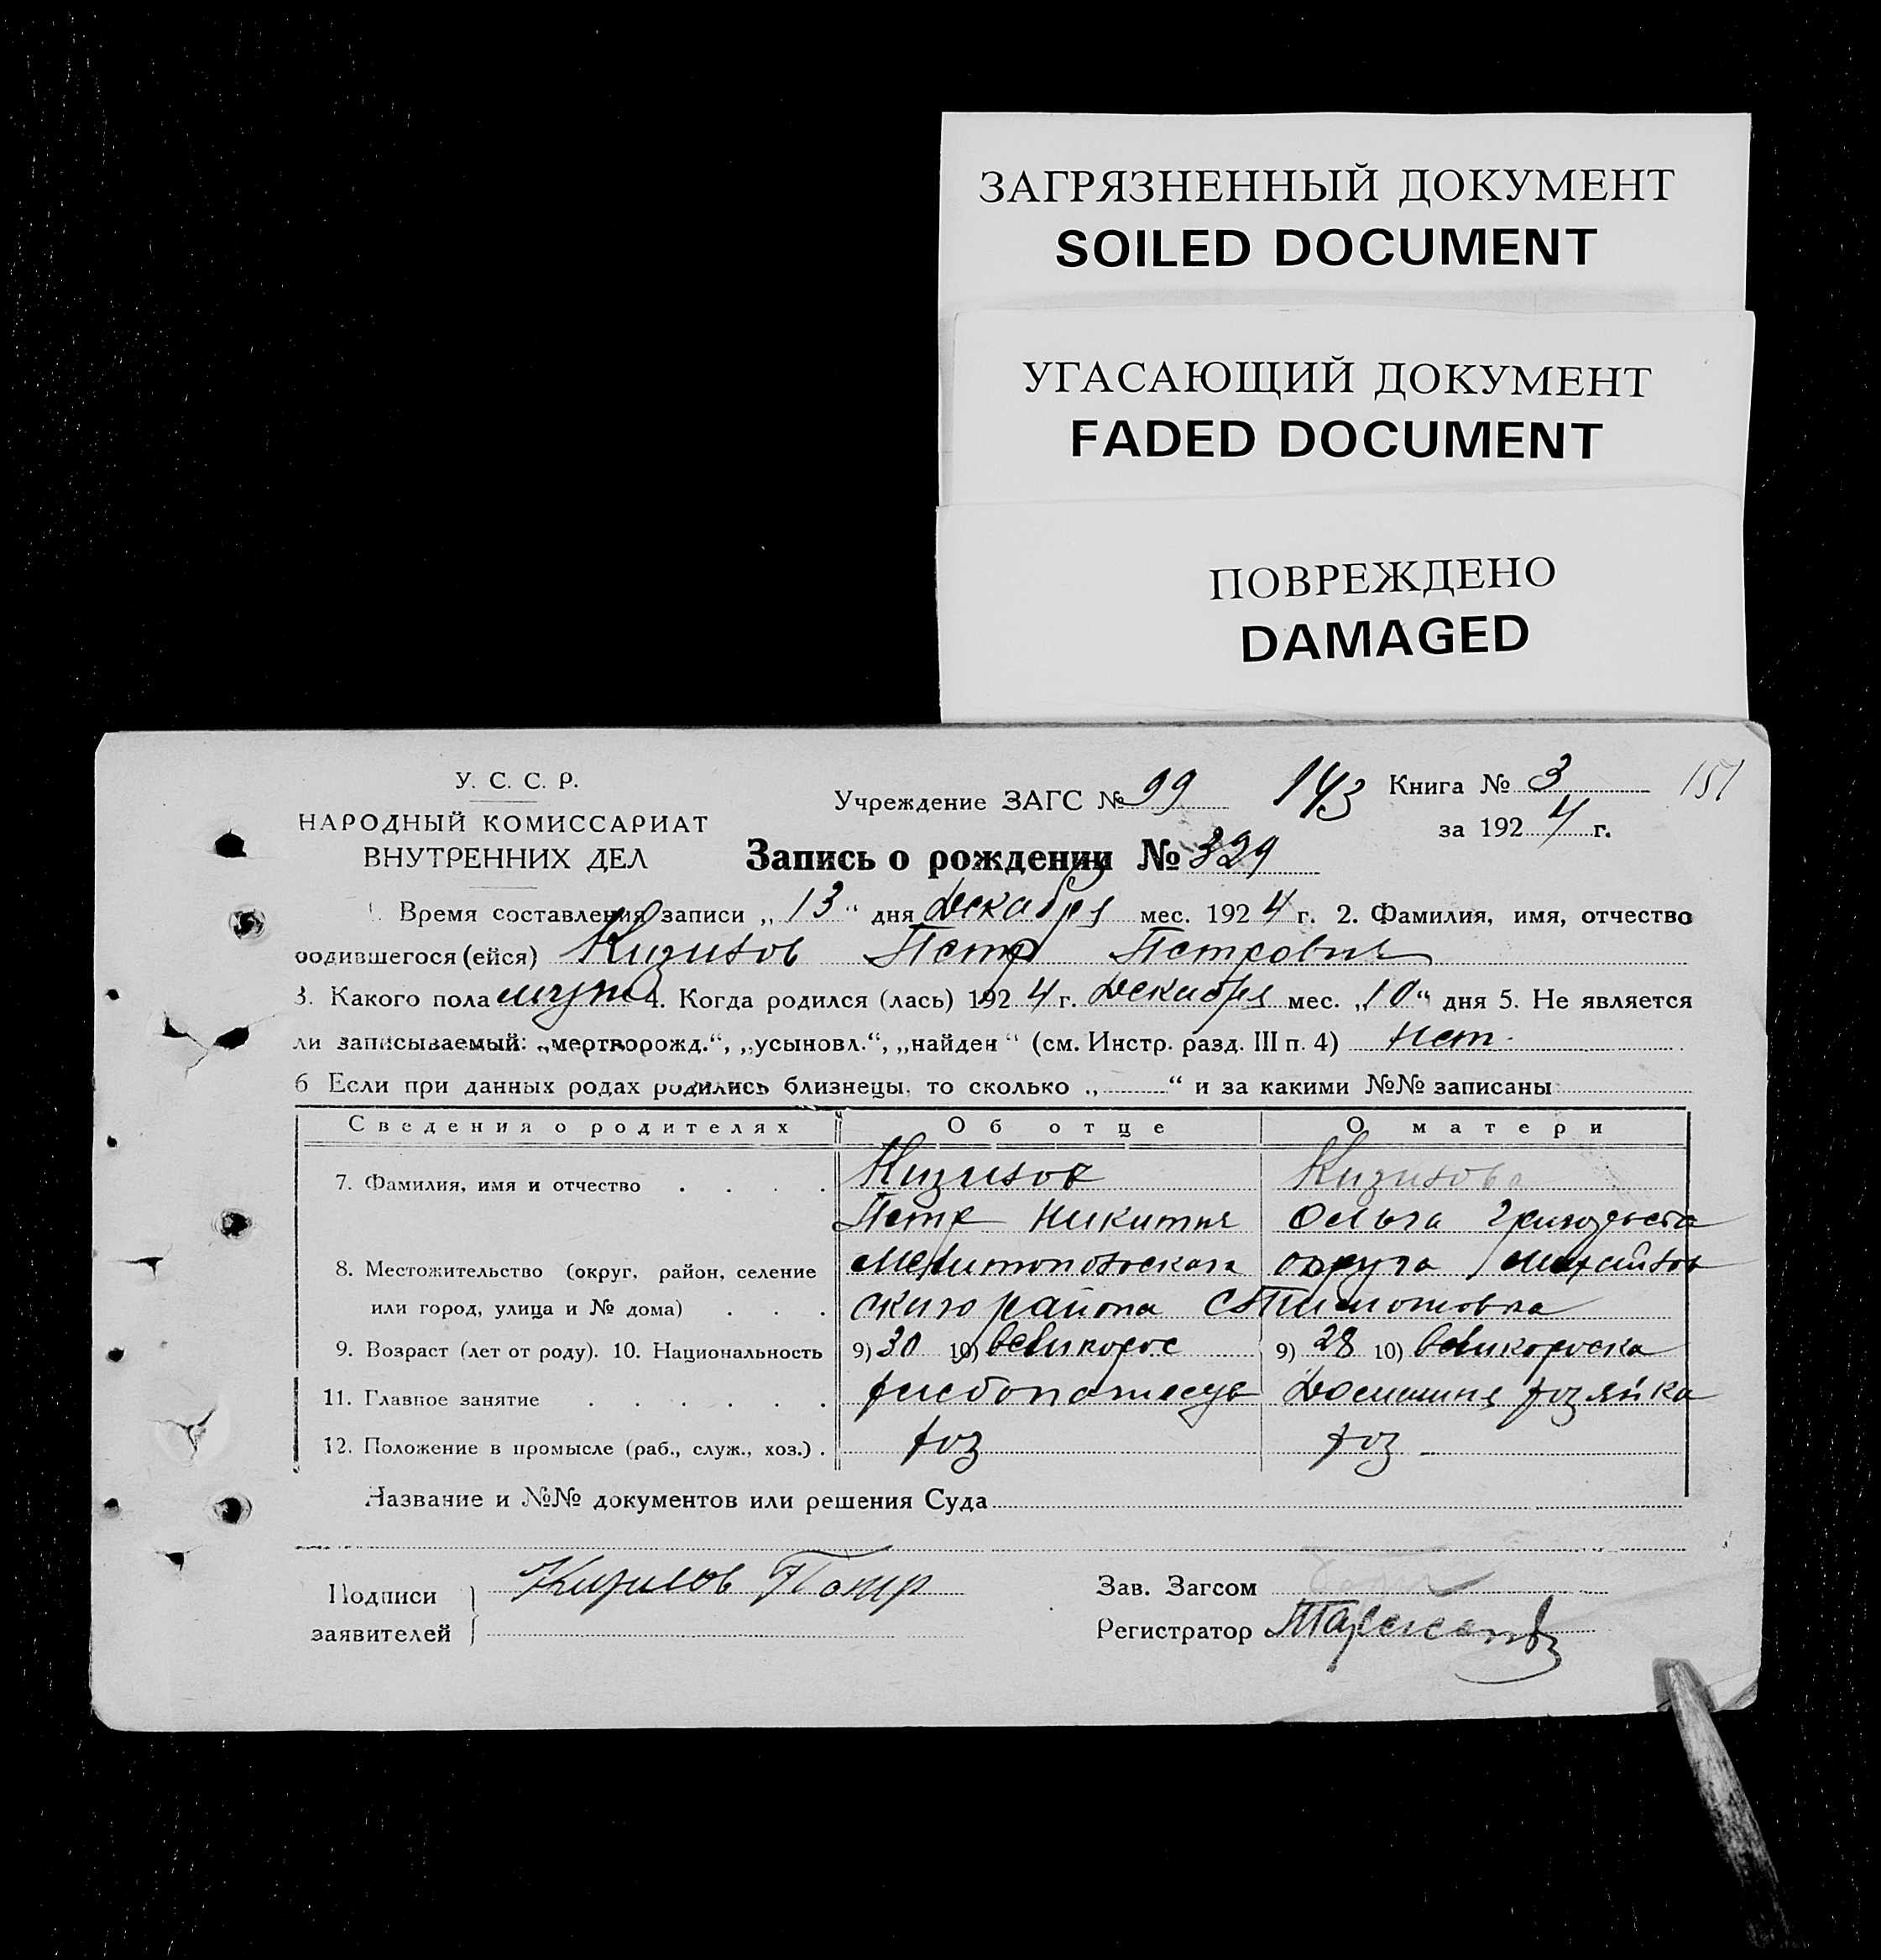 ЗАГРЯЗНЕННЫЙ ДОКУМЕНТ
SOILED DOCUMENT
УГАСАЮЩИЙ ДОКУМЕНТ
FADED DOCUMENT
ПОВРЕЖДЕНО
DAMAGED
У. С. С. Р.
НАРОДНЫЙ КОМИССАРИАТ
ВНУТРЕННИХ ДЕЛ
Учреждение ЗАГС № 99 143 Книга № 3 151
за 1924 г.
Запись о рождении № 329
1. Время составления записи „13“ дня Декабря мес. 1924 г. 2. Фамилия, имя, отчество
родившегося (ейся) Кизилов Петр Петрович
3. Какого пола муж 4. Когда родился (лась) 1924 г. Декабря мес. „10“ дня 5. Не является
ли записываемый: „мертворожд.“, „усыновл.“, „найден“ (см. Инстр. разд. III п. 4) нет.
6 Если при данных родах родились близнецы, то сколько „ “ и за какими №№ записаны
Сведения о родителях Об отце О матери
7. Фамилия, имя и отчество Кизилов Кизилова
Петр Никитич Ольга
8. Местожительство (округ, район, селение Мелитопольского округа Михайлов
или город, улица и № дома) ского района
9. Возраст (лет от роду). 10. Национальность 9) 30 10) великорос 9) 28 10) великороска
11. Главное занятие хлебопашец Домашня хозяйка
12. Положение в промысле (раб., служ., хоз.) хоз хоз
Название и №№ документов или решения Суда
Подписи Кизилов Петр Зав. Загсом
заявителей Регистратор